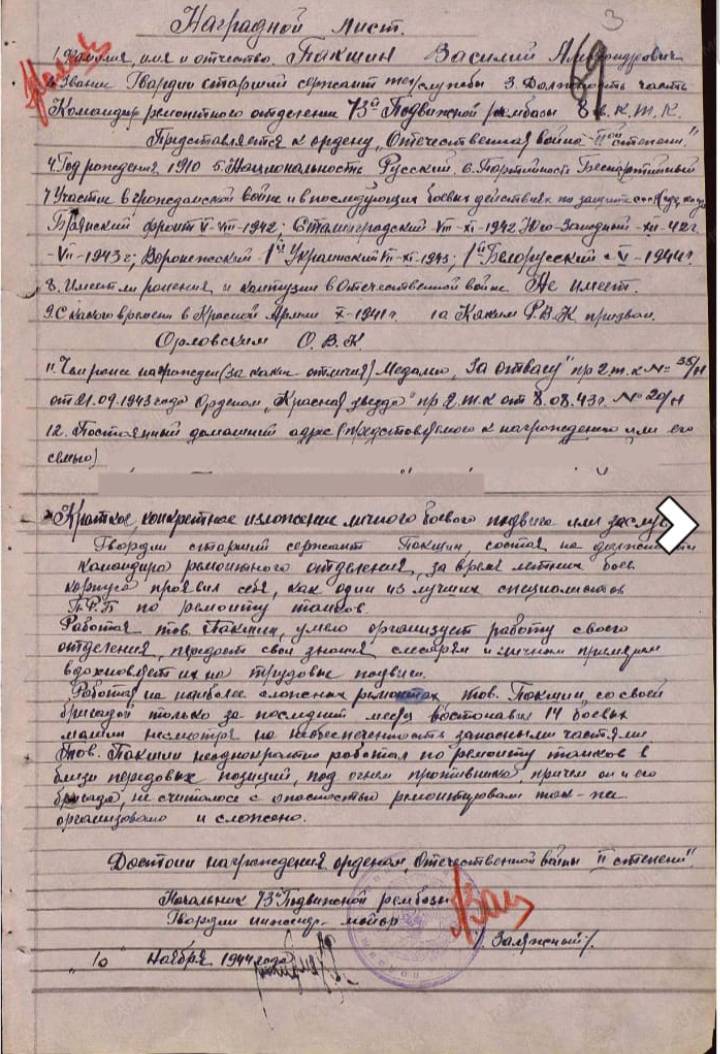 Наградной лист.
3
69
1. Фамилия, имя и отчество. Пакшин Василий Александрович
2. Звание Гвардии старший сержант тех/службы 3. Должность часть
Командир ремонтного отделения 73й Подвижной рембазы 8 г.К.Т.К.
Представляется к ордену „Отечественная война II ой степени."
4. Год рождения 1910 5. Национальность Русский 6. Партийность Беспартийный
7 Участие в гражданской войне и в последующих боевых действиях по защите СССР (где, когда
Брянский фронт V-VIII-1942; Сталинградский VIII-XI-1942 Юго-Западный -XII-42г
-VII-1943г; Воронежский - 1й Украинский -XI-1943; 1й Белорусский - V-1944г.
8. Имеет ли ранения и контузии в Отечественной войне Не имеет.
9. С какого времени в Красной Армии X-1941г. 10 Каким Р.В.К призван.
Орловским О.В.К
11. Чем ранее награжден (за какие отличия) Медалью „За отвагу" пр 2.т.к № 35/н
от 21.09.1943 года Орденом „Красная звезда" пр 2.т.к от 8.08.43г. № 20/н
12. Постоянный домашний адрес (представляемого к награждению или его
семью)
Краткое, конкретное изложение личного боевого подвига или заслуг
Гвардии старший сержант Пакшин, состоя на должности
командира ремонтного отделения, за время летних боев
корпуса проявил себя, как один из лучших специалистов
П.Р.Б по ремонту танков.
Работая тов. Пакшин, умело организует работу своего
отделения, передает свои знания слесарям и личным примером
вдохновляет их на трудовые подвиги.
Работая на наиболее сложных ремонтах тов. Пакшин, со своей
бригадой только за последний месяц востонавил 14 боевых
машин несмотря на необеспеченность запасными частями
Тов. Пакшин неоднократно работал по ремонту танков в
близи передовых позиций, под огнем противника, причем он и его
бригада, не считалось с опасностью ремонтировали так-же
организовано и слажено.
Достоин награждения орденом „Отечественной войны II степени".
Начальник 73й Подвижной рембазы
Гвардии инженер-майор
/Заляжный/.
„10 Ноября 1944 года